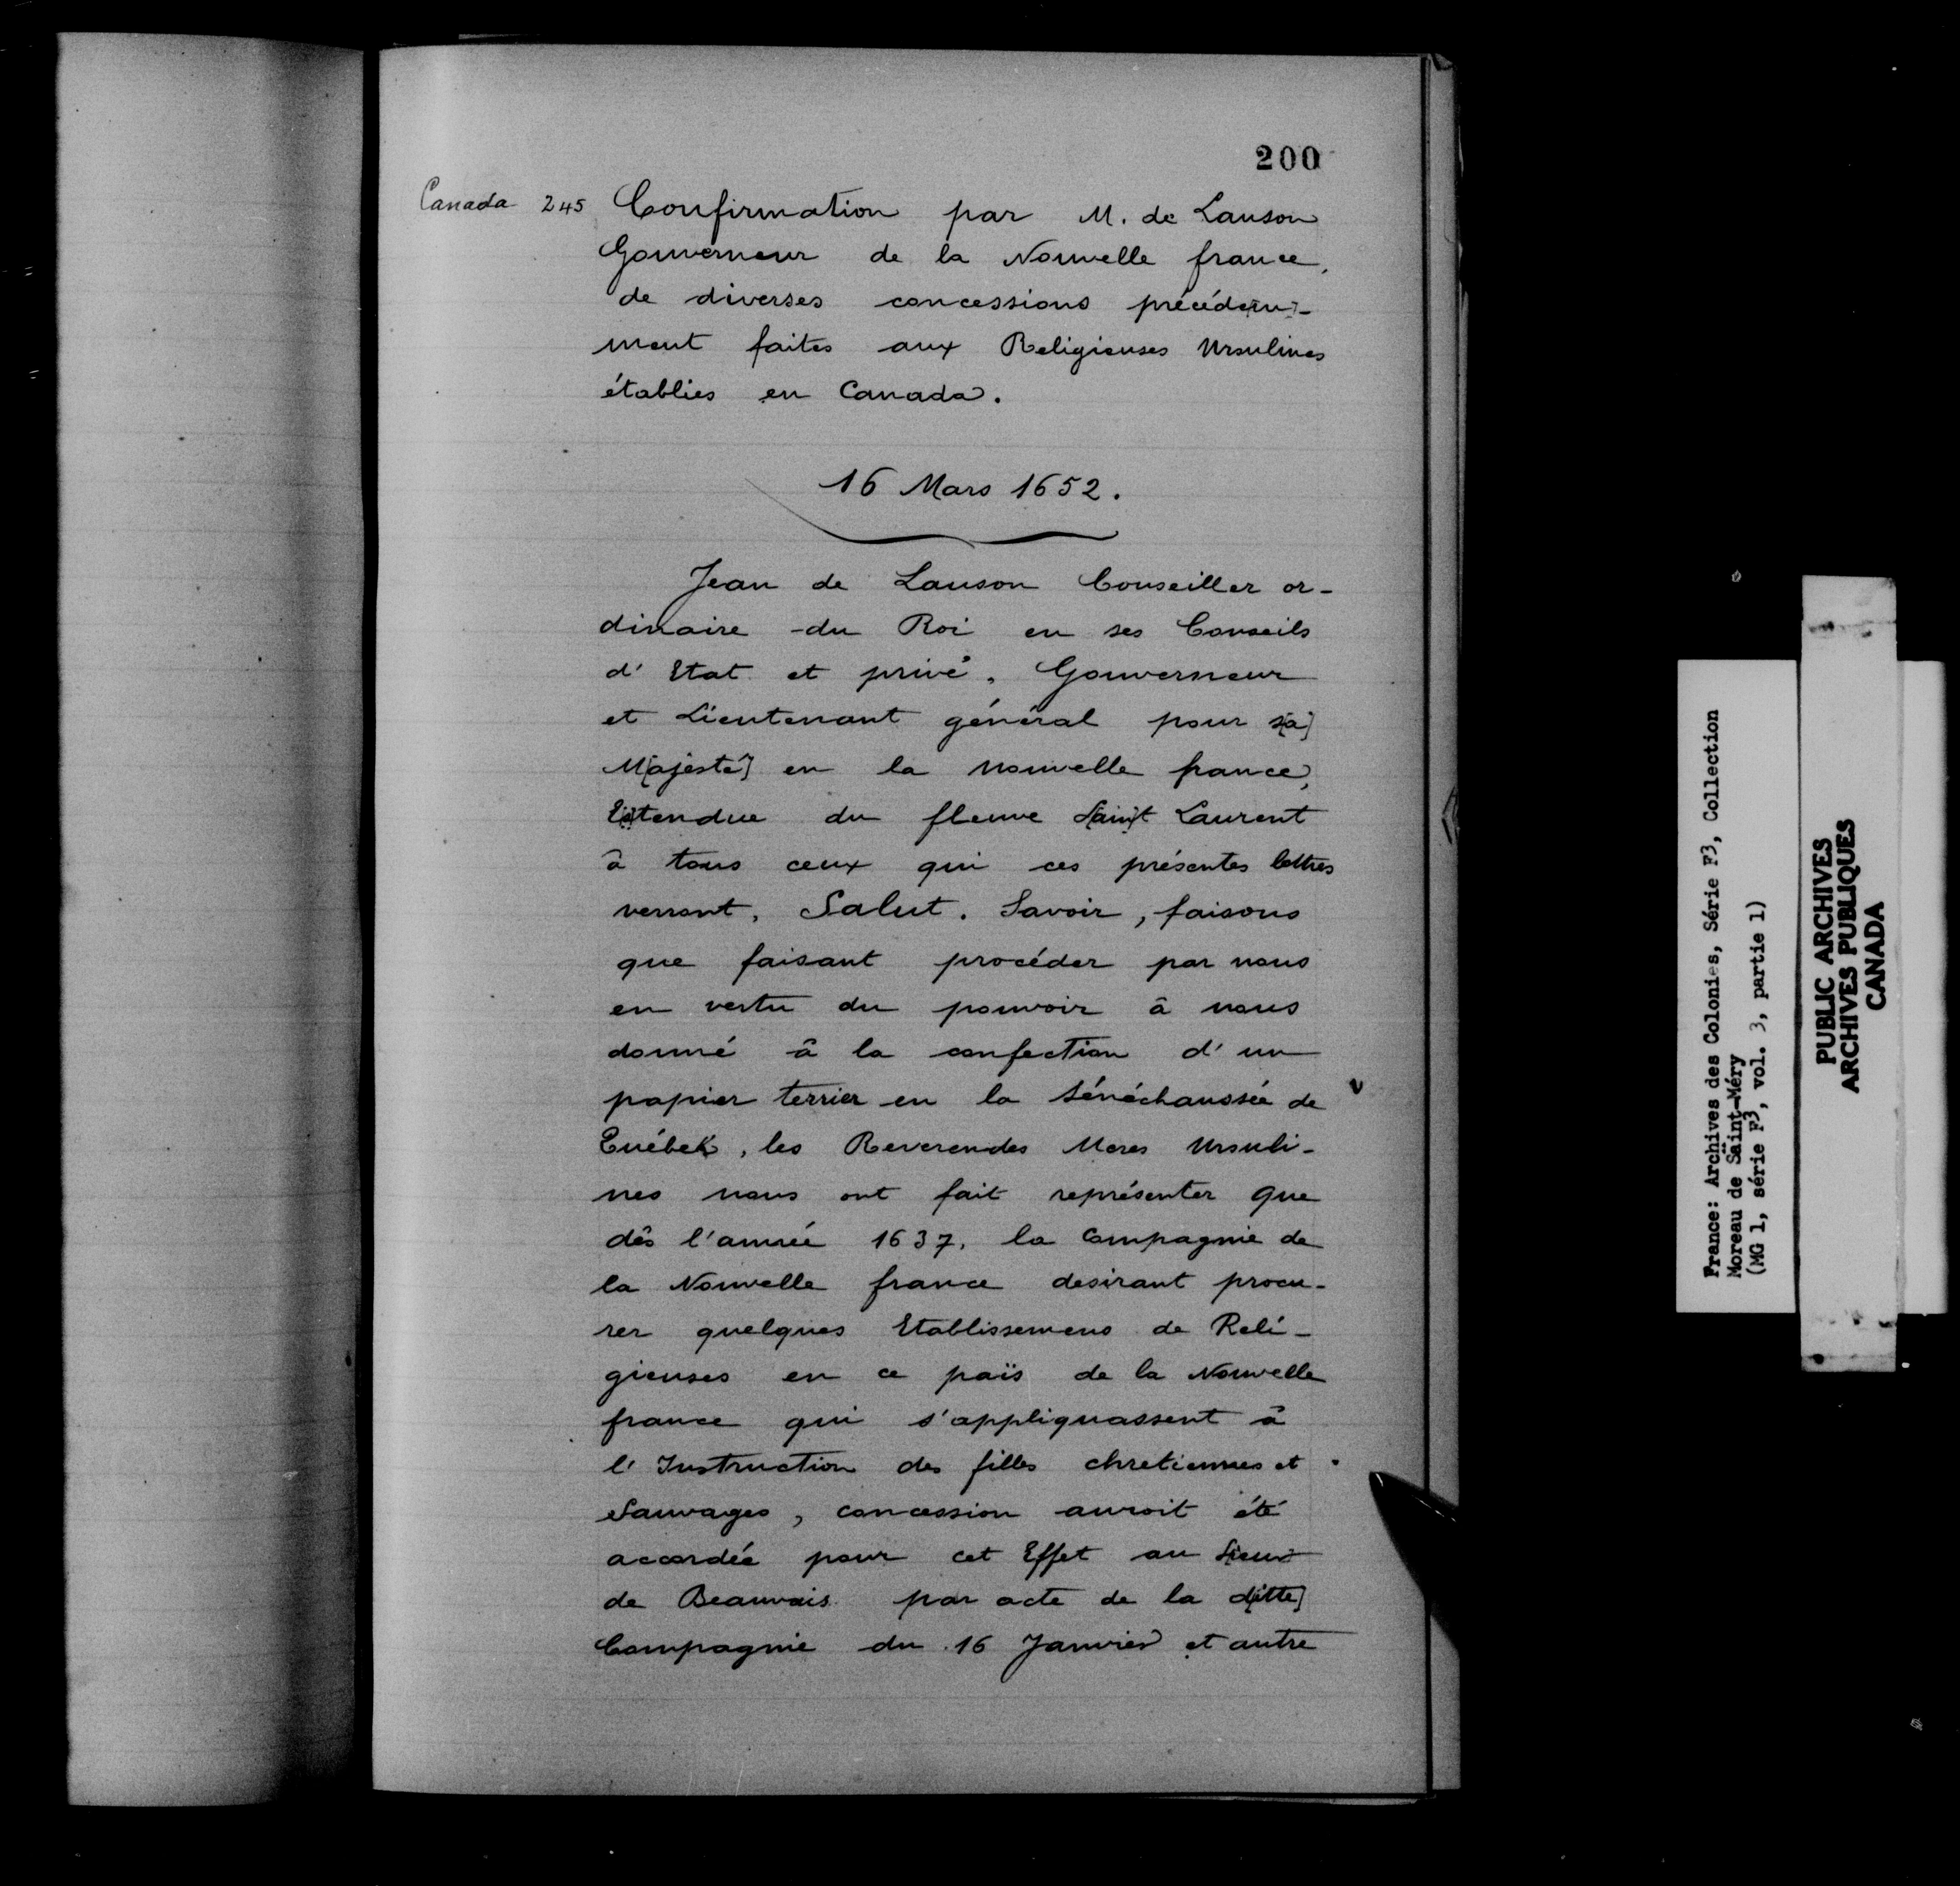 200
Canada 245 Confirmation par M. de Lauson
Gouverneur de la Nouvelle france,
de diverses concessions précédem-
ment faites aux Religieuses Ursulines
établies en Canada.
16 Mars 1652.
Jean de Lauson Conseiller or-
dinaire du Roi en ses Conseils
d'Etat et privé, Gouverneur
et Lieutenant général pour s[a]
M[ajesté] en la nouvelle france,
E[s]tendue du fleuve S[ain]t Laurent
à tous ceux qui ces présentes lettres
verront, Salut. Savoir, faisons
que faisant procéder par nous
en vertu du pouvoir à nous
donné à la confection d'un
papier terrier en la Sénéchaussée de
Québek, les Reverendes Meres Ursuli-
nes nous ont fait représenter que
dês l'année 1637, la Compagnie de
la Nouvelle france desirant procu-
rer quelques Etablissemens de Reli-
gieuses en ce païs de la Nouvelle
france qui s'appliquassent à
l'Instruction des filles chretiennes et
Sauvages, concession auroit été
accordée pour cet Effet au Sieur
de Beauvais par acte de la d[itte]
Compagnie du 16 Janvier et autre
France: Archives des Colonies, Série F3, Collection
Moreau de Saint-Méry
(MG 1, série F3, vol. 3, partie 1)
PUBLIC ARCHIVES
ARCHIVES PUBLIQUES
CANADA